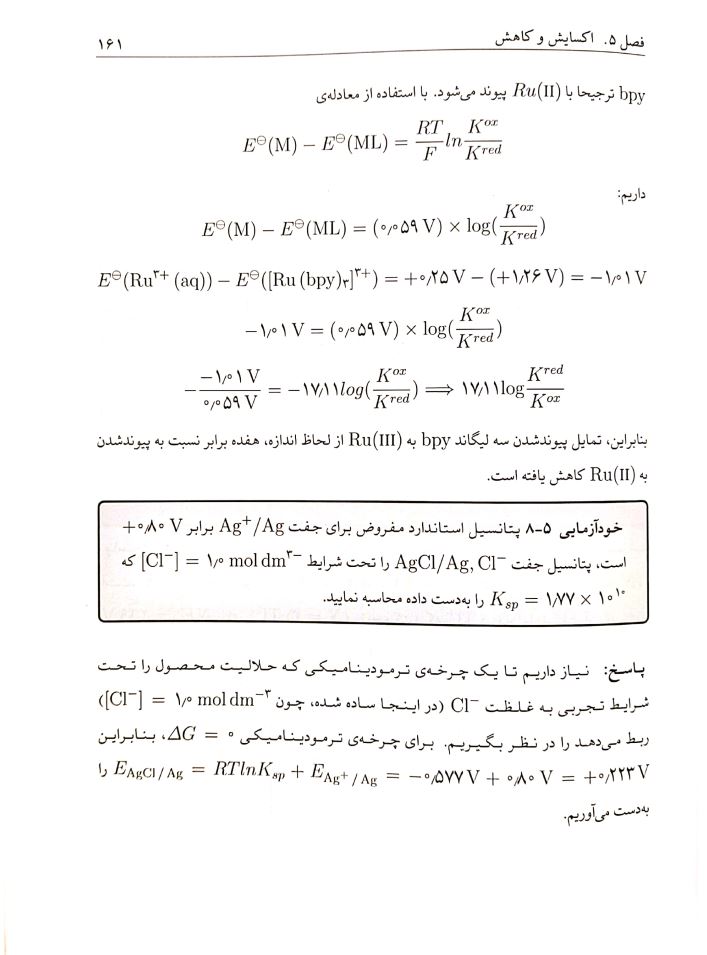 فصل ۵. اکسایش و کاهش ۱۶۱
bpy ترجیحا با Ru(II) پیوند می‌شود. با استفاده از معادله‌ی
E⊖(M) − E⊖(ML) = RT/F ln K^ox/K^red
داریم:
E⊖(M) − E⊖(ML) = (۰٫۰۵۹ V) × log(K^ox/K^red)
E⊖(Ru³⁺ (aq)) − E⊖([Ru (bpy)₃]³⁺) = +۰٫۲۵ V − (+۱٫۲۶ V) = −۱٫۰۱ V
−۱٫۰۱ V = (۰٫۰۵۹ V) × log(K^ox/K^red)
− −۱٫۰۱ V/۰٫۰۵۹ V = −۱۷٫۱۱log(K^ox/K^red) ⟹ ۱۷٫۱۱log K^red/K^ox
بنابراین، تمایل پیوندشدن سه لیگاند bpy به Ru(III) از لحاظ اندازه، هفده برابر نسبت به پیوندشدن
به Ru(II) کاهش یافته است.
خودآزمایی ۵-۸ پتانسیل استاندارد مفروض برای جفت Ag⁺/Ag برابر +۰٫۸۰ V
است، پتانسیل جفت AgCl/Ag, Cl⁻ را تحت شرایط [Cl⁻] = ۱٫۰ mol dm³⁻ که
K_sp = ۱٫۷۷ × ۱۰¹⁰ را به‌دست داده محاسبه نمایید.
پاسخ: نیاز داریم تا یک چرخه‌ی ترمودینامیکی که حلالیت محصول را تحت
شرایط تجربی به غلظت Cl⁻ (در اینجا ساده شده، چون [Cl⁻] = ۱٫۰ mol dm⁻³)
ربط می‌دهد را در نظر بگیریم. برای چرخه‌ی ترمودینامیکی ΔG = ۰، بنابراین
E_AgCl/Ag = RTlnK_sp + E_Ag⁺/Ag = −۰٫۵۷۷ V + ۰٫۸۰ V = +۰٫۲۲۳ V را
به‌دست می‌آوریم.